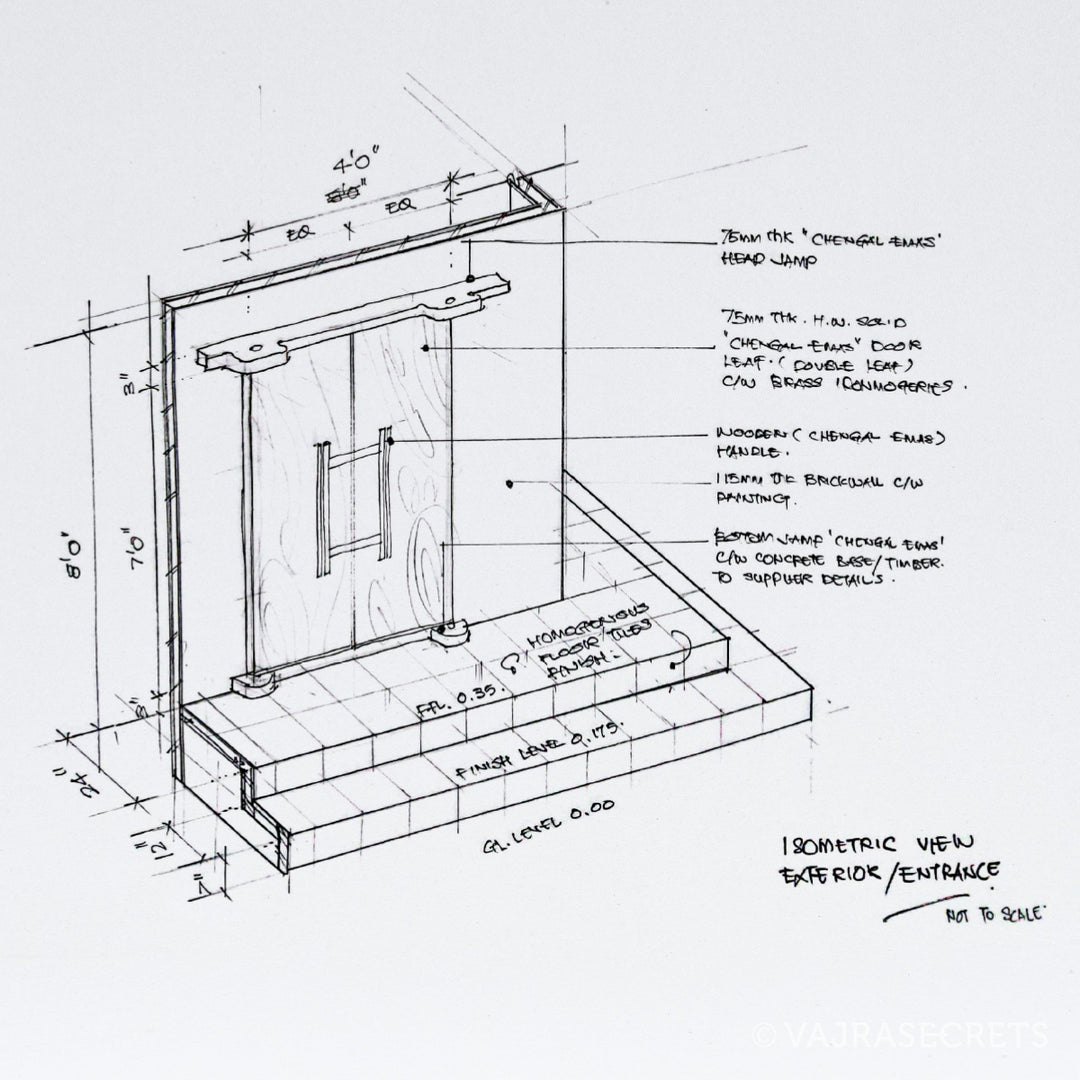 4'0"
EQ
EQ
75MM THK "CHENGAL EMAS"
HEAD JAMP
75MM THK. H.W. SOLID
"CHENGAL EMAS" DOOR
LEAF. (DOUBLE LEAF)
C/W BRASS IRONMOGERIES.
WOODEN (CHENGAL EMAS)
HANDLE.
115MM TK BRICKWALL C/W
PAINTING.
BOTTOM JAMP 'CHENGAL EMAS'
C/W CONCRETE BASE/TIMBER.
TO SUPPLIER DETAILS.
3"
8'0"
7'0"
3"
24"
12"
7"
HOMOGENIOUS
FLOOR/TILES
FINISH.
FFL. 0.35.
FINISH LEVEL 0.175.
GL. LEVEL 0.00
ISOMETRIC VIEW
EXTERIOR/ENTRANCE
NOT TO SCALE
© VAJRASECRETS